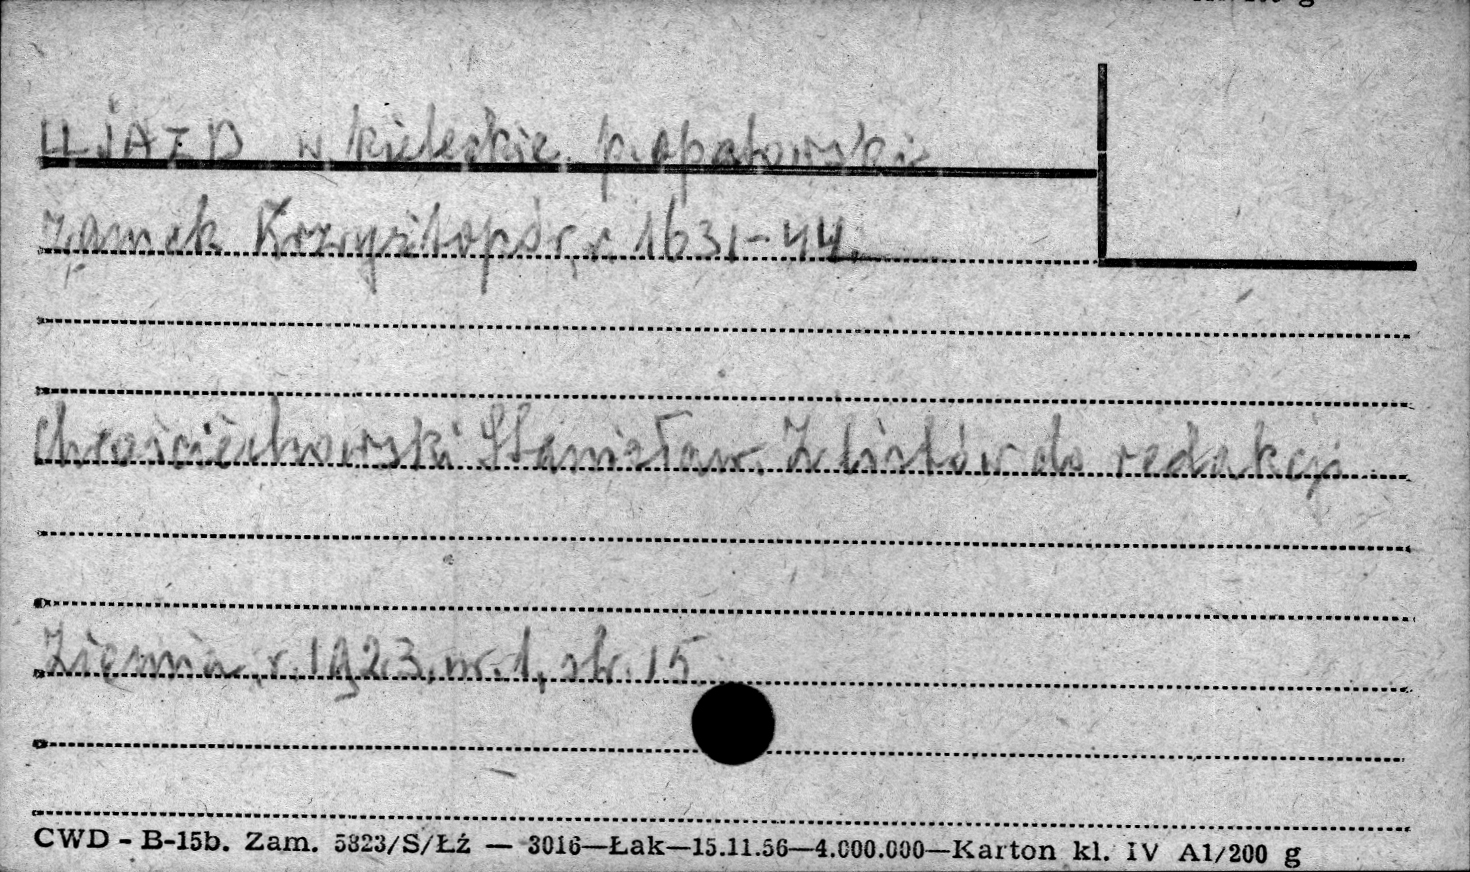 UJAZD w kieleckie p. opatowski
zamek Krzyżtopór, r. 1631-44.
Chrościechowski Stanisław. Z listów do redakcji.
Ziemia, r. 1923, nr. 1, str. 15
CWD - B-15b. Zam. 5823/S/Łź — 3016—Łak—15.11.56—4.000.000—Karton kl. IV A1/200 g